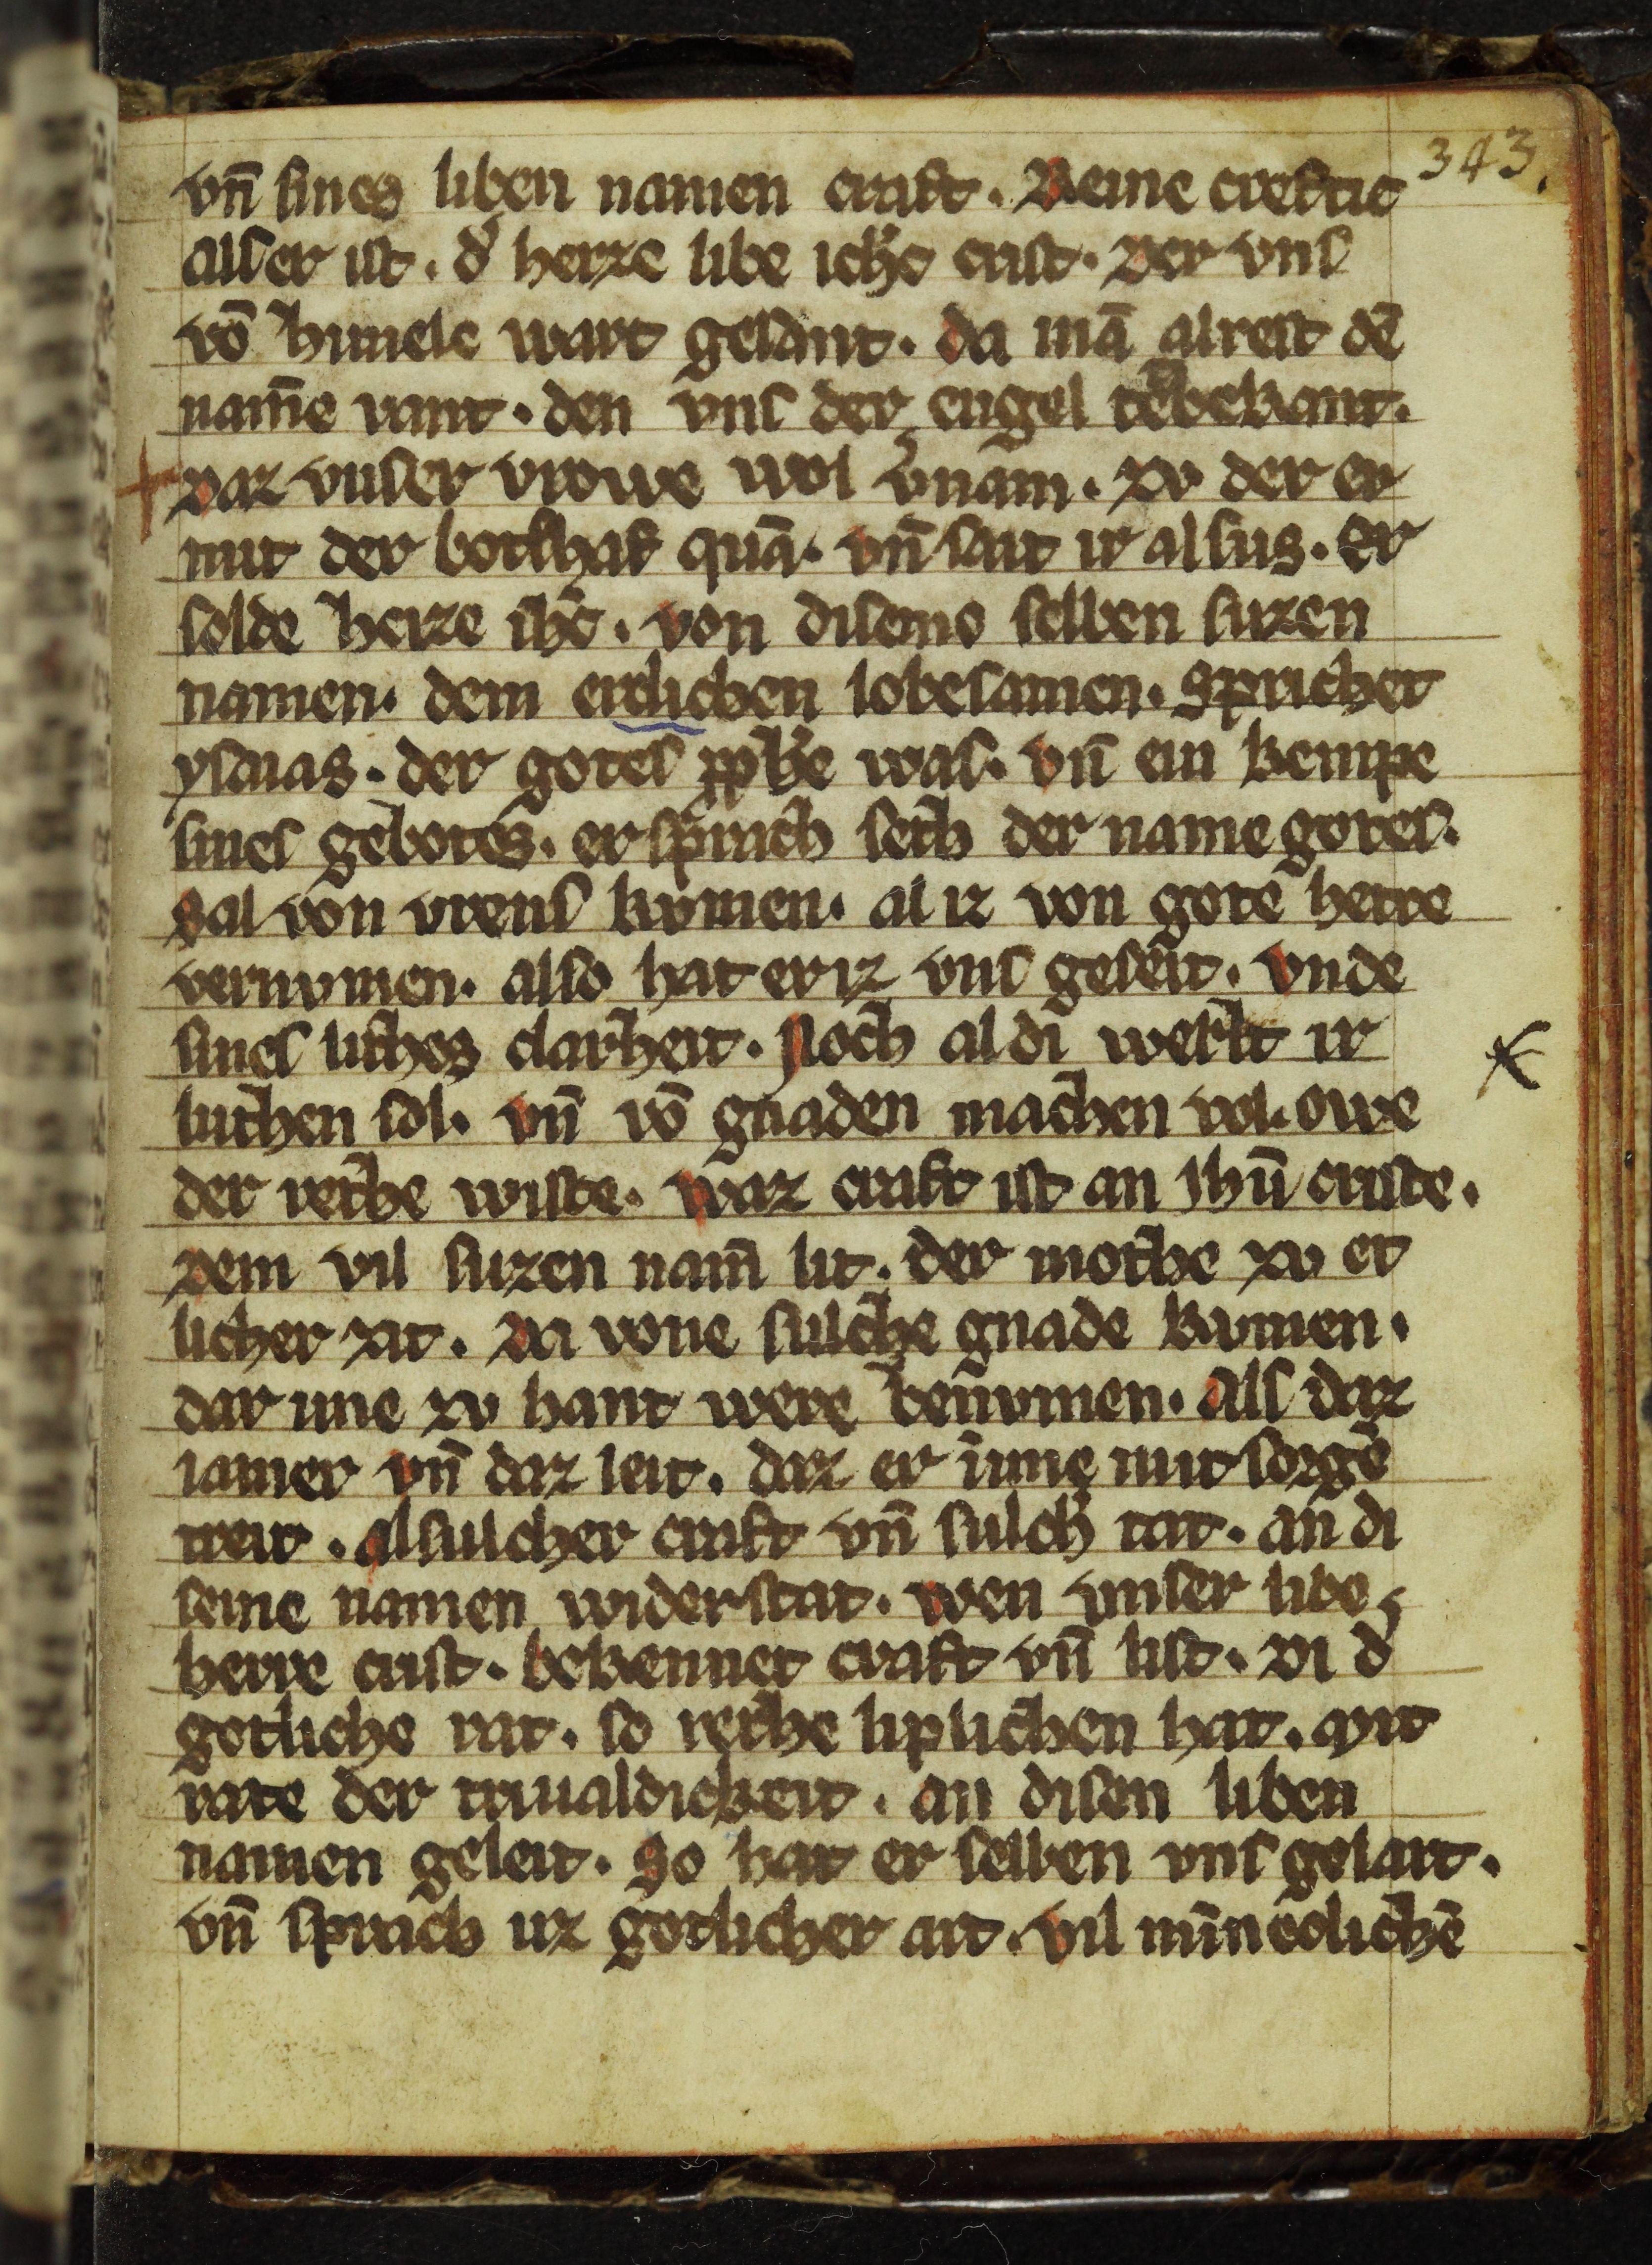 343.
vn̄ sines liben namen craft. Reine creftic
alser ist. d' herze libe ich'c crist. Der vns
vō himele wart gesant. da mā alreist dē
nam̄e vant. den vns der engel tet bekant.
Daz vnser vrowe wol v'nam. zv der er
mit der botshaft quā. vn̄ sait ir alsus. Er
solde heize ihc̄. von diseme selben suzen
namen. dem erclichen lobesamen. Sprichet
ysaias. der gotes ꝓph'e was. vn̄ ein kempe
sines gebotes. er sprach sech der name gotes.
Sal von vrens kvmen. al iz von gote herre
vernvmen. also hat er iz vns geseit. vnde
sines lichtes clarheit. Noch al di werlt ir
luchten sol. vn̄ vō gnaden machen vol. owe
der rechte wiste. waz craft ist an Jhū criste.
Dem vil suzen nam̄ lit. der mochte zv et
licher zit. Di vone sulche gnade kvmen.
dar ime zv hant were benvmen. Als daz
iamer vn̄ daz leit. daz er imme mit sorgē
treit. alsulcher craft vn̄ sulch' tat. an di
seme namen widerstat. wen vnser libe
herre crist. bekennet craft vn̄ list. Di d'
gotliche rat. so rechte liplichen hat. Mit
rate der triualdickeit. an disen liben
namen geleit. So hat er selben vns gelart.
vn̄ sprach uz gotlicher art. vil minneclichē